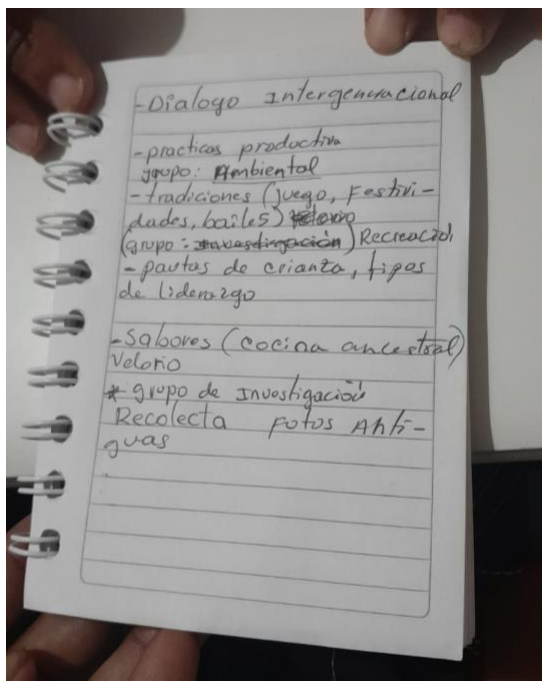 -Dialogo Intergeneracional
-practicas productiva
grupo: Ambiental
-tradiciones (juego, Festivi-
dades, bailes)
(grupo: investigación) Recreación
-pautas de crianza, tipos
de liderazgo
-Sabores (cocina ancestral)
Velorio
* grupo de Investigación
Recolecta Fotos Anti-
guas